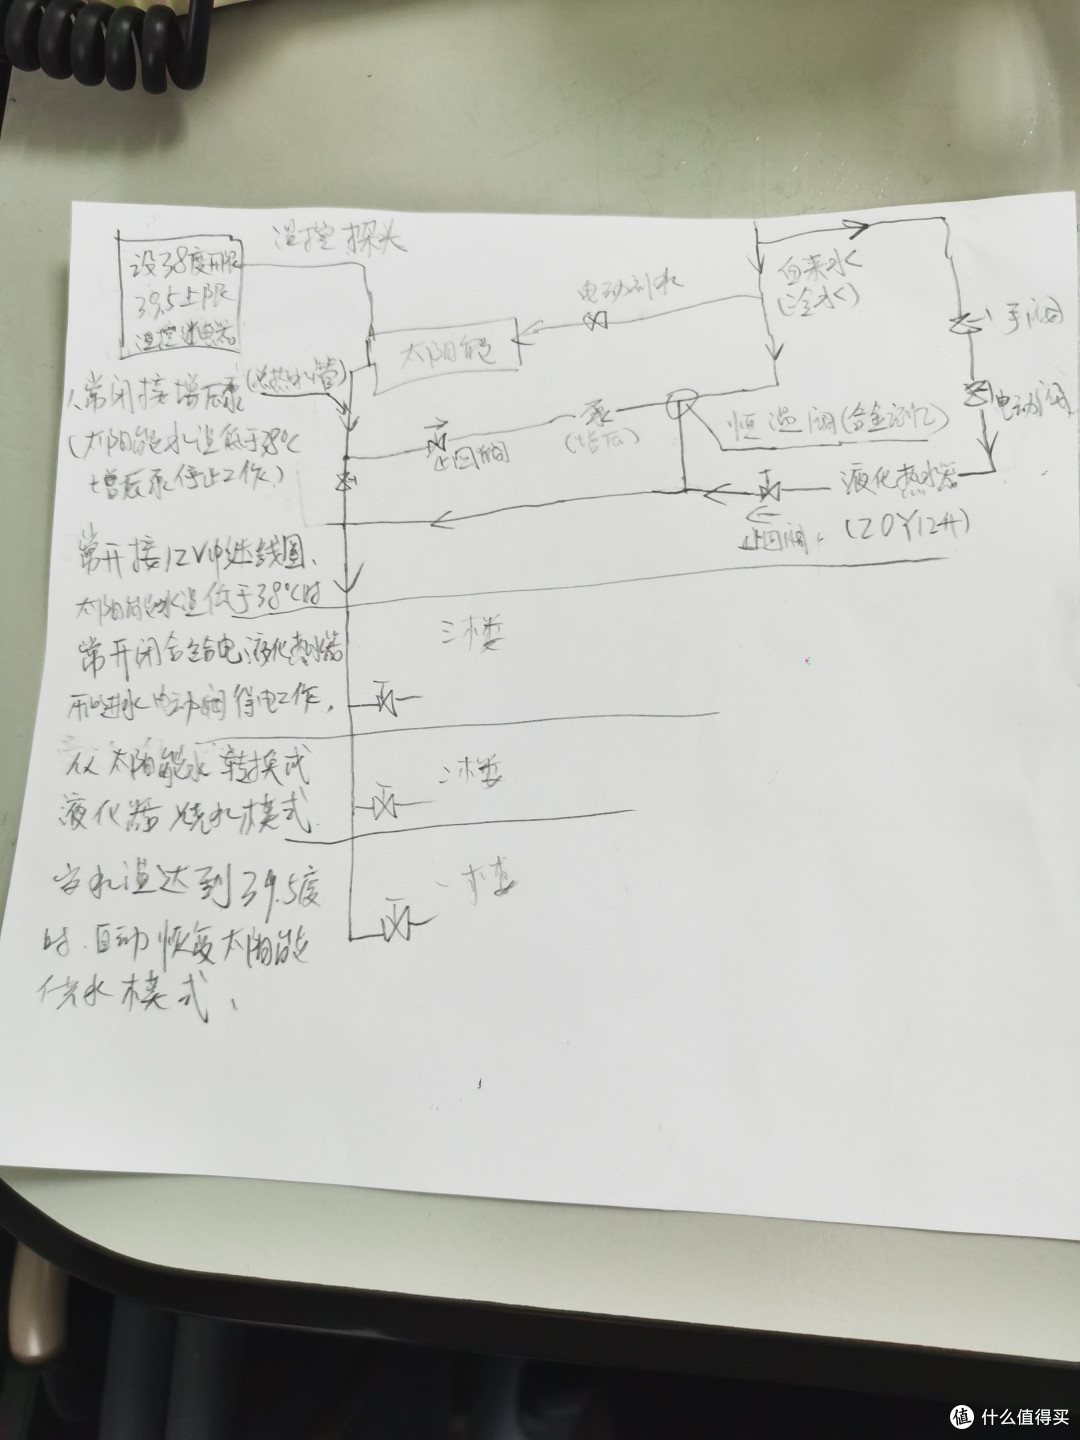 温控探头
设38度下限
39.5上限
温控继电器
自来水
(冷水)
电动补水
手阀
太阳能
电动阀
(总热水管)
1、常闭接增压泵
泵
(增压)
恒温阀(合金记忆)
止回阀
(太阳能水温低于38℃
增压泵停止工作)
液化热水器
(20Y12升)
止回阀
常开接12V中继线圈、
太阳能水温低于38℃时
常开闭合给电液化热水器
和进水电动阀得电工作,
从太阳能水转换成
液化器烧水模式.
三楼
二楼
一楼
当水温达到39.5度
时.自动恢复太阳能
供水模式、
值 什么值得买